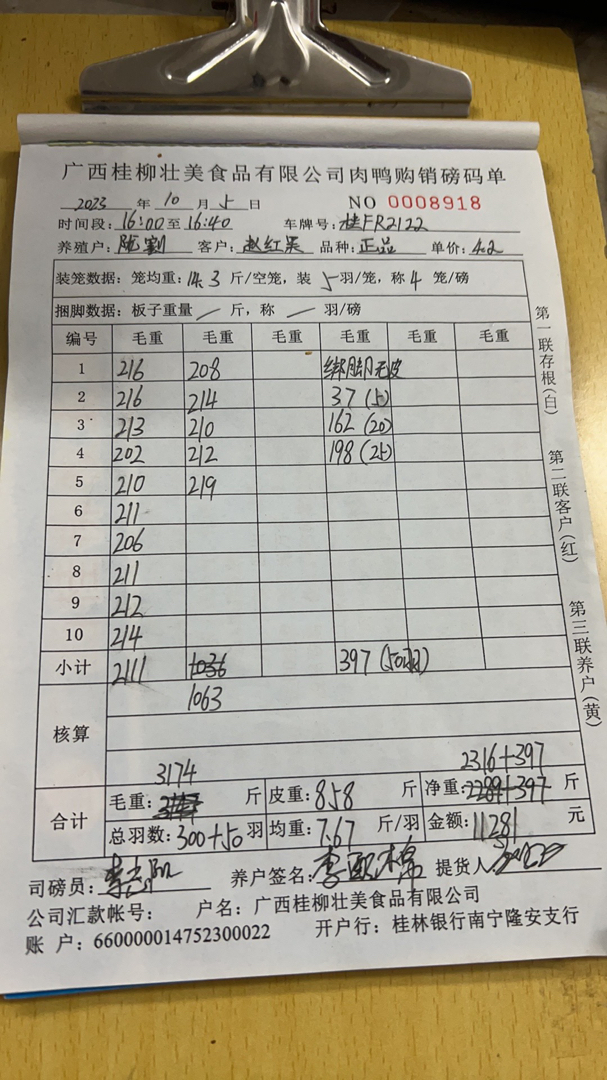 广西桂柳壮美食品有限公司肉鸭购销磅码单
2023 年 10 月 5 日 NO 0008918
时间段: 16:00至16:40 车牌号: 桂FR2122
养殖户: 客户: 赵红 品种: 正品 单价: 4.2
装笼数据: 笼均重: 14.3 斤/空笼, 装 5 羽/笼, 称 4 笼/磅
捆脚数据: 板子重量 / 斤, 称 / 羽/磅
编号 毛重 毛重 毛重 毛重 毛重 毛重
1 216 208 绑脚无皮
2 216 214 37 (5)
3 213 210 162 (20)
4 202 212 198 (25)
5 210 219
6 211
7 206
8 211
9 212
10 214
小计 2111 1036 397 (50羽)
1063
核算
3174 2316+397
合计 毛重: 斤 皮重: 858 斤 净重: 2289+397 斤
总羽数: 300+50 羽 均重: 7.67 斤/羽 金额: 11281 元
司磅员: 养户签名: 李 提货人
公司汇款帐号: 户名: 广西桂柳壮美食品有限公司
账 户: 660000014752300022 开户行: 桂林银行南宁隆安支行
第一联存根(白)
第二联客户(红)
第三联养户(黄)